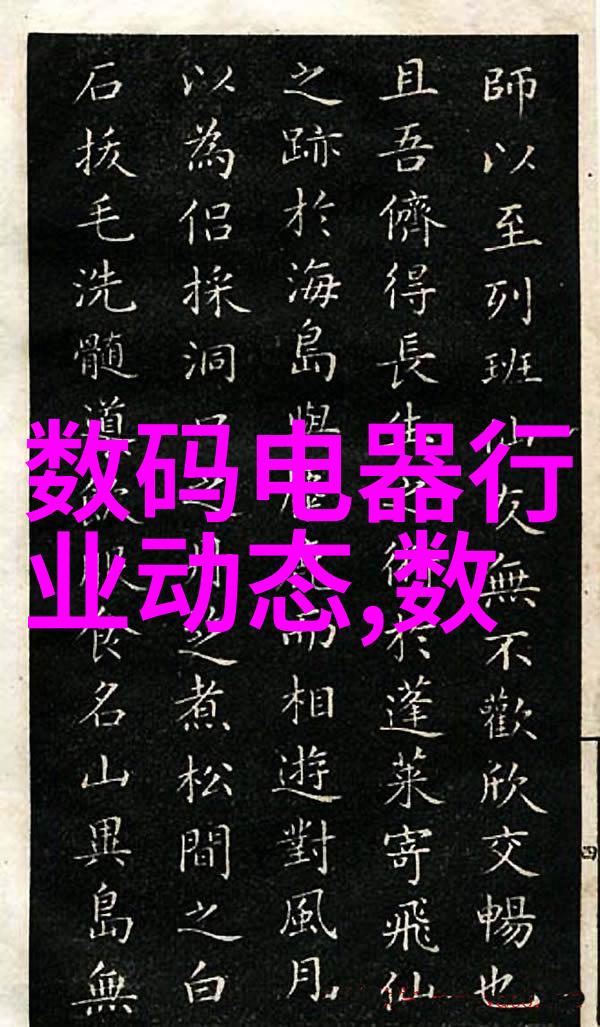 師以至列班仙友無不歡欣交暢也
且吾儕得長生術於蓬萊寄飛仙
之跡於海島與而相遊對風月
以為侶採洞之之煮松間之白
石拔毛洗髓導服食名山異島無
数码电器行
业动态,数
四